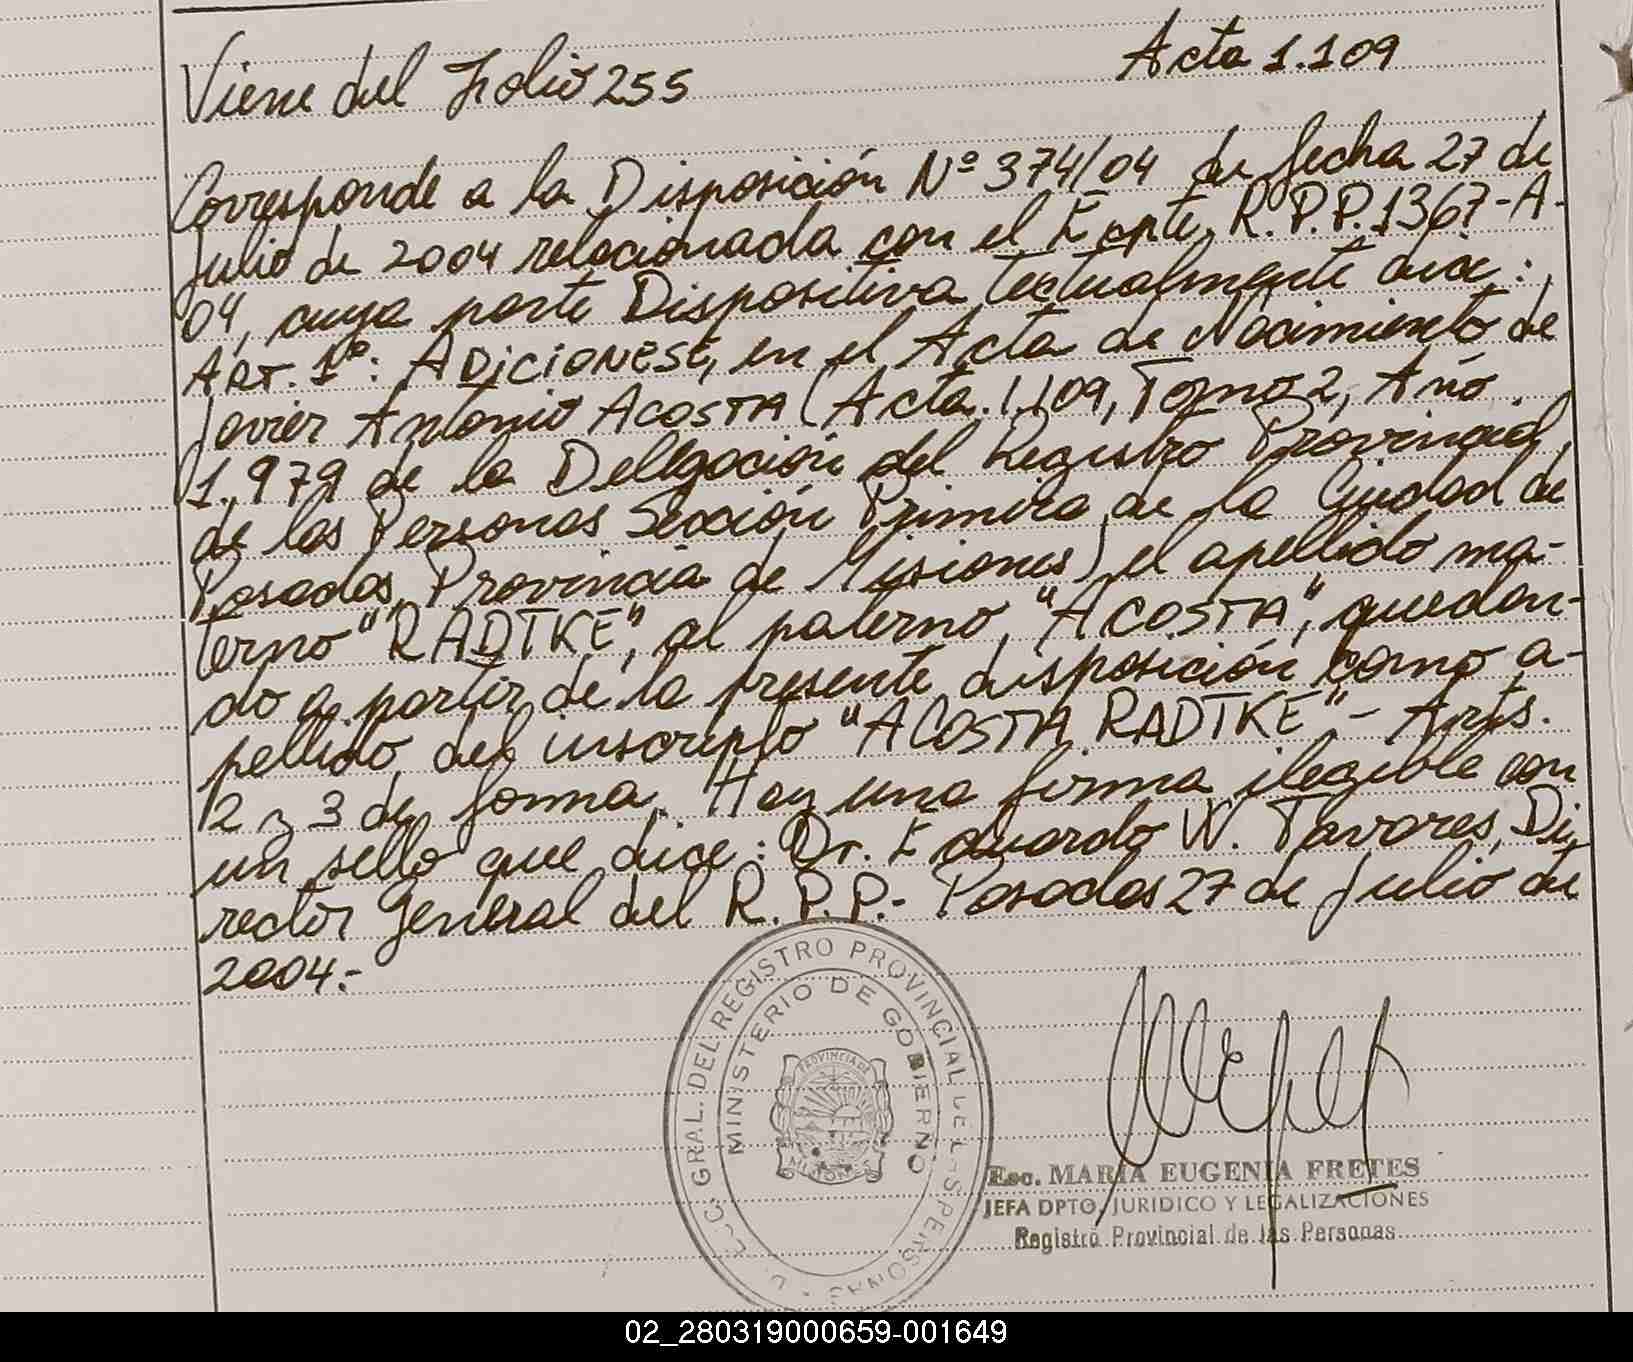 Viene del Folio 255
Acta 1.109
Corresponde a la Disposición Nº 374/04 de fecha 27 de
Julio de 2004 relacionada con el Expte. R.P.P. 1367-A-
04, cuya parte Dispositiva textualmente dice:
ART. 1º: ADICIONESE, en el Acta de Nacimiento de
Javier Antonio ACOSTA (Acta 1.109, Tomo 2, Año
1.979 de la Delegación del Registro Provincial
de las Personas Sección Primera de la Ciudad de
Posadas, Provincia de Misiones) el apellido ma-
terno "RADTKE", al paterno, "ACOSTA", quedan-
do a partir de la presente disposición como a-
pellido del inscripto "ACOSTA RADTKE" - Arts.
2 y 3 de forma. Hay una firma ilegible con
un sello que dice: Dr. Eduardo W. Tavares, Di-
rector General del R.P.P.- Posadas 27 de Julio de
2004.-
GRAL. DEL REGISTRO PROVINCIAL DE LAS PERSONAS
MINISTERIO DE GOBIERNO
PROVINCIA DE
MISIONES
Esc. MARIA EUGENIA FRETES
JEFA DPTO. JURIDICO Y LEGALIZACIONES
Registro Provincial de las Personas
02_280319000659-001649